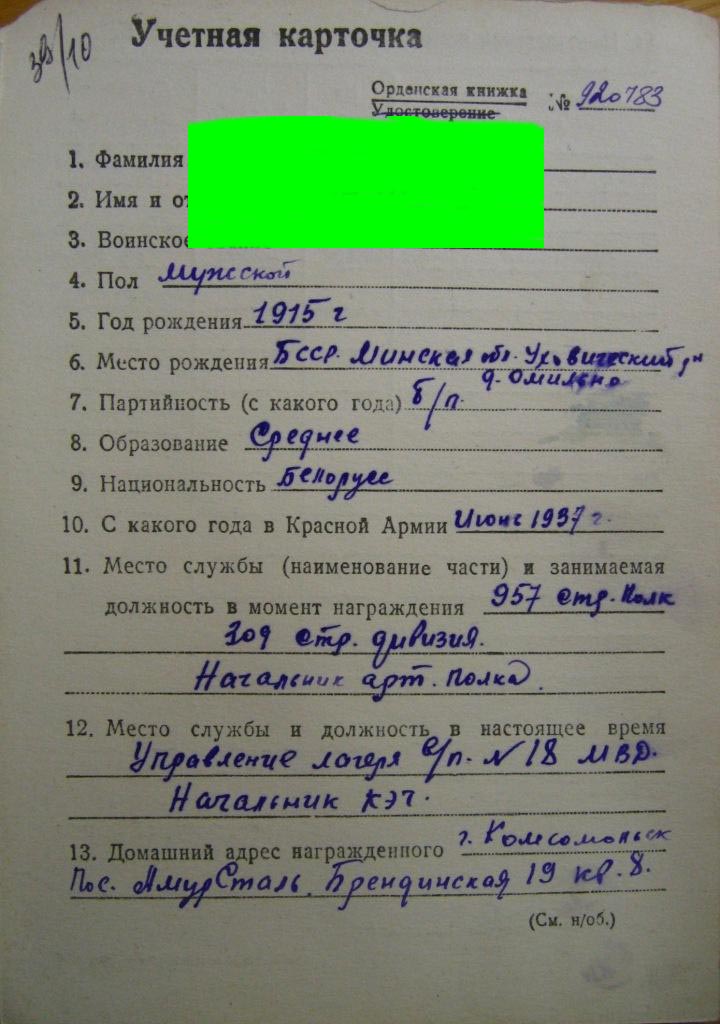 39/10
Учетная карточка
Орденская книжка
Удостоверение № 920783
1. Фамилия
2. Имя и от
3. Воинское
4. Пол Мужской
5. Год рождения 1915 г
6. Место рождения БССР. Минская обл. р-н
д. Омильно
7. Партийность (с какого года) б/п.
8. Образование Среднее
9. Национальность Белорусс
10. С какого года в Красной Армии Июнь 1937 г.
11. Место службы (наименование части) и занимаемая
должность в момент награждения 957 стр. Полк
309 стр. дивизия.
Начальник арт. Полка.
12. Место службы и должность в настоящее время
Управление лагеря в/п. N 18 МВД.
Начальник КЭЧ.
13. Домашний адрес награжденного г. Комсомольск
Пос. АмурСталь. Брендинская 19 кв. 8.
(См. н/об.)